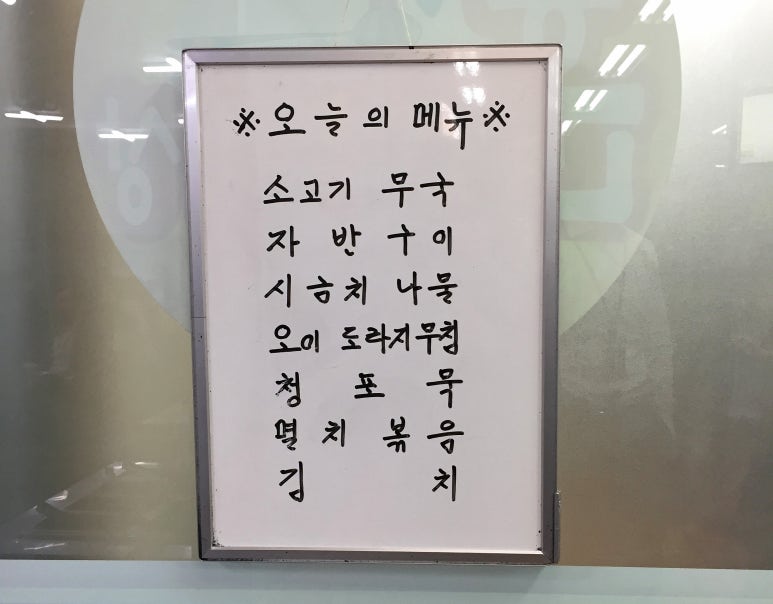 ※오늘의 메뉴※
소고기 무국
자반구이
시금치 나물
오이 도라지무침
청포묵
멸치볶음
김치